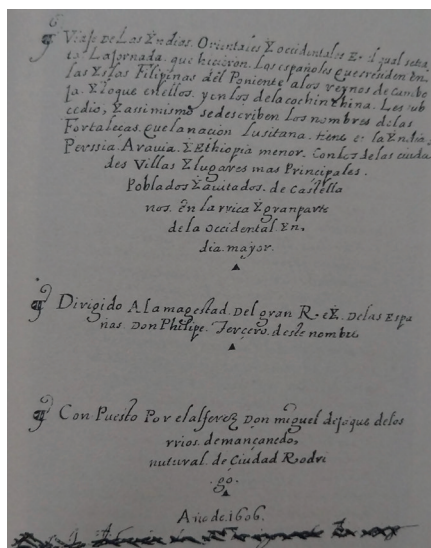 Viaje De Las Yndias. Orientales Y occidentales En el qual se tra
ta. La Jornada. que hicieron. Los españoles que rresiden en.
las Yslas Filipinas del Poniente alos reynos de Cambo
ja. Y lo que en ellos. y en los de la cochin china. Les sub
cedio, Y assi mismo se describen los nombres de las
Fortaleças. que la nacion Lusitana. tiene en la Yndia.
Perssia. Aravia. Y Ethiopia menor. Con los de las ciuda
des Villas Y lugares mas Principales.
Poblados Y avitados. de Castella
nos. en la rrica Y gran parte
de la occidental. Yn,
dia. mayor.
Dirigido A la magestad. Del gran R.eY. De las Espa
ñas. Don Philipe. Tercero. deste nombre
Con Puesto Por el alferez Don miguel de joque delos
rrios. de mançanedo,
natural. de Ciudad Rodri
.go.
Año de. 1606.